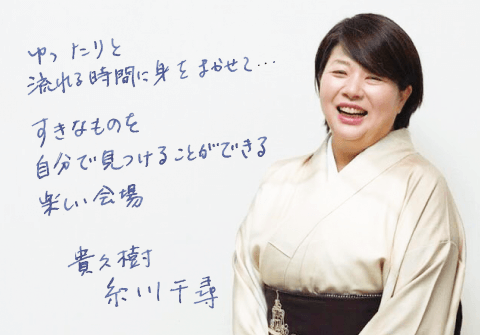 ゆったりと
流れる時間に身をまかせて…
すきなものを
自分で見つけることができる
楽しい会場
貴久樹
糸川千尋